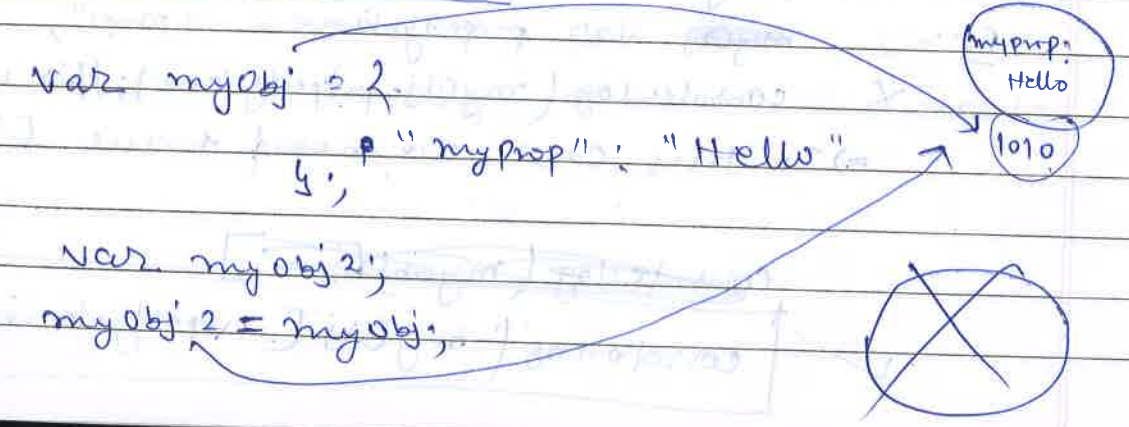 var myObj = {
"myprop" : "Hello"
};
var myObj2;
myObj2 = myObj;
myprop:
Hello
1010